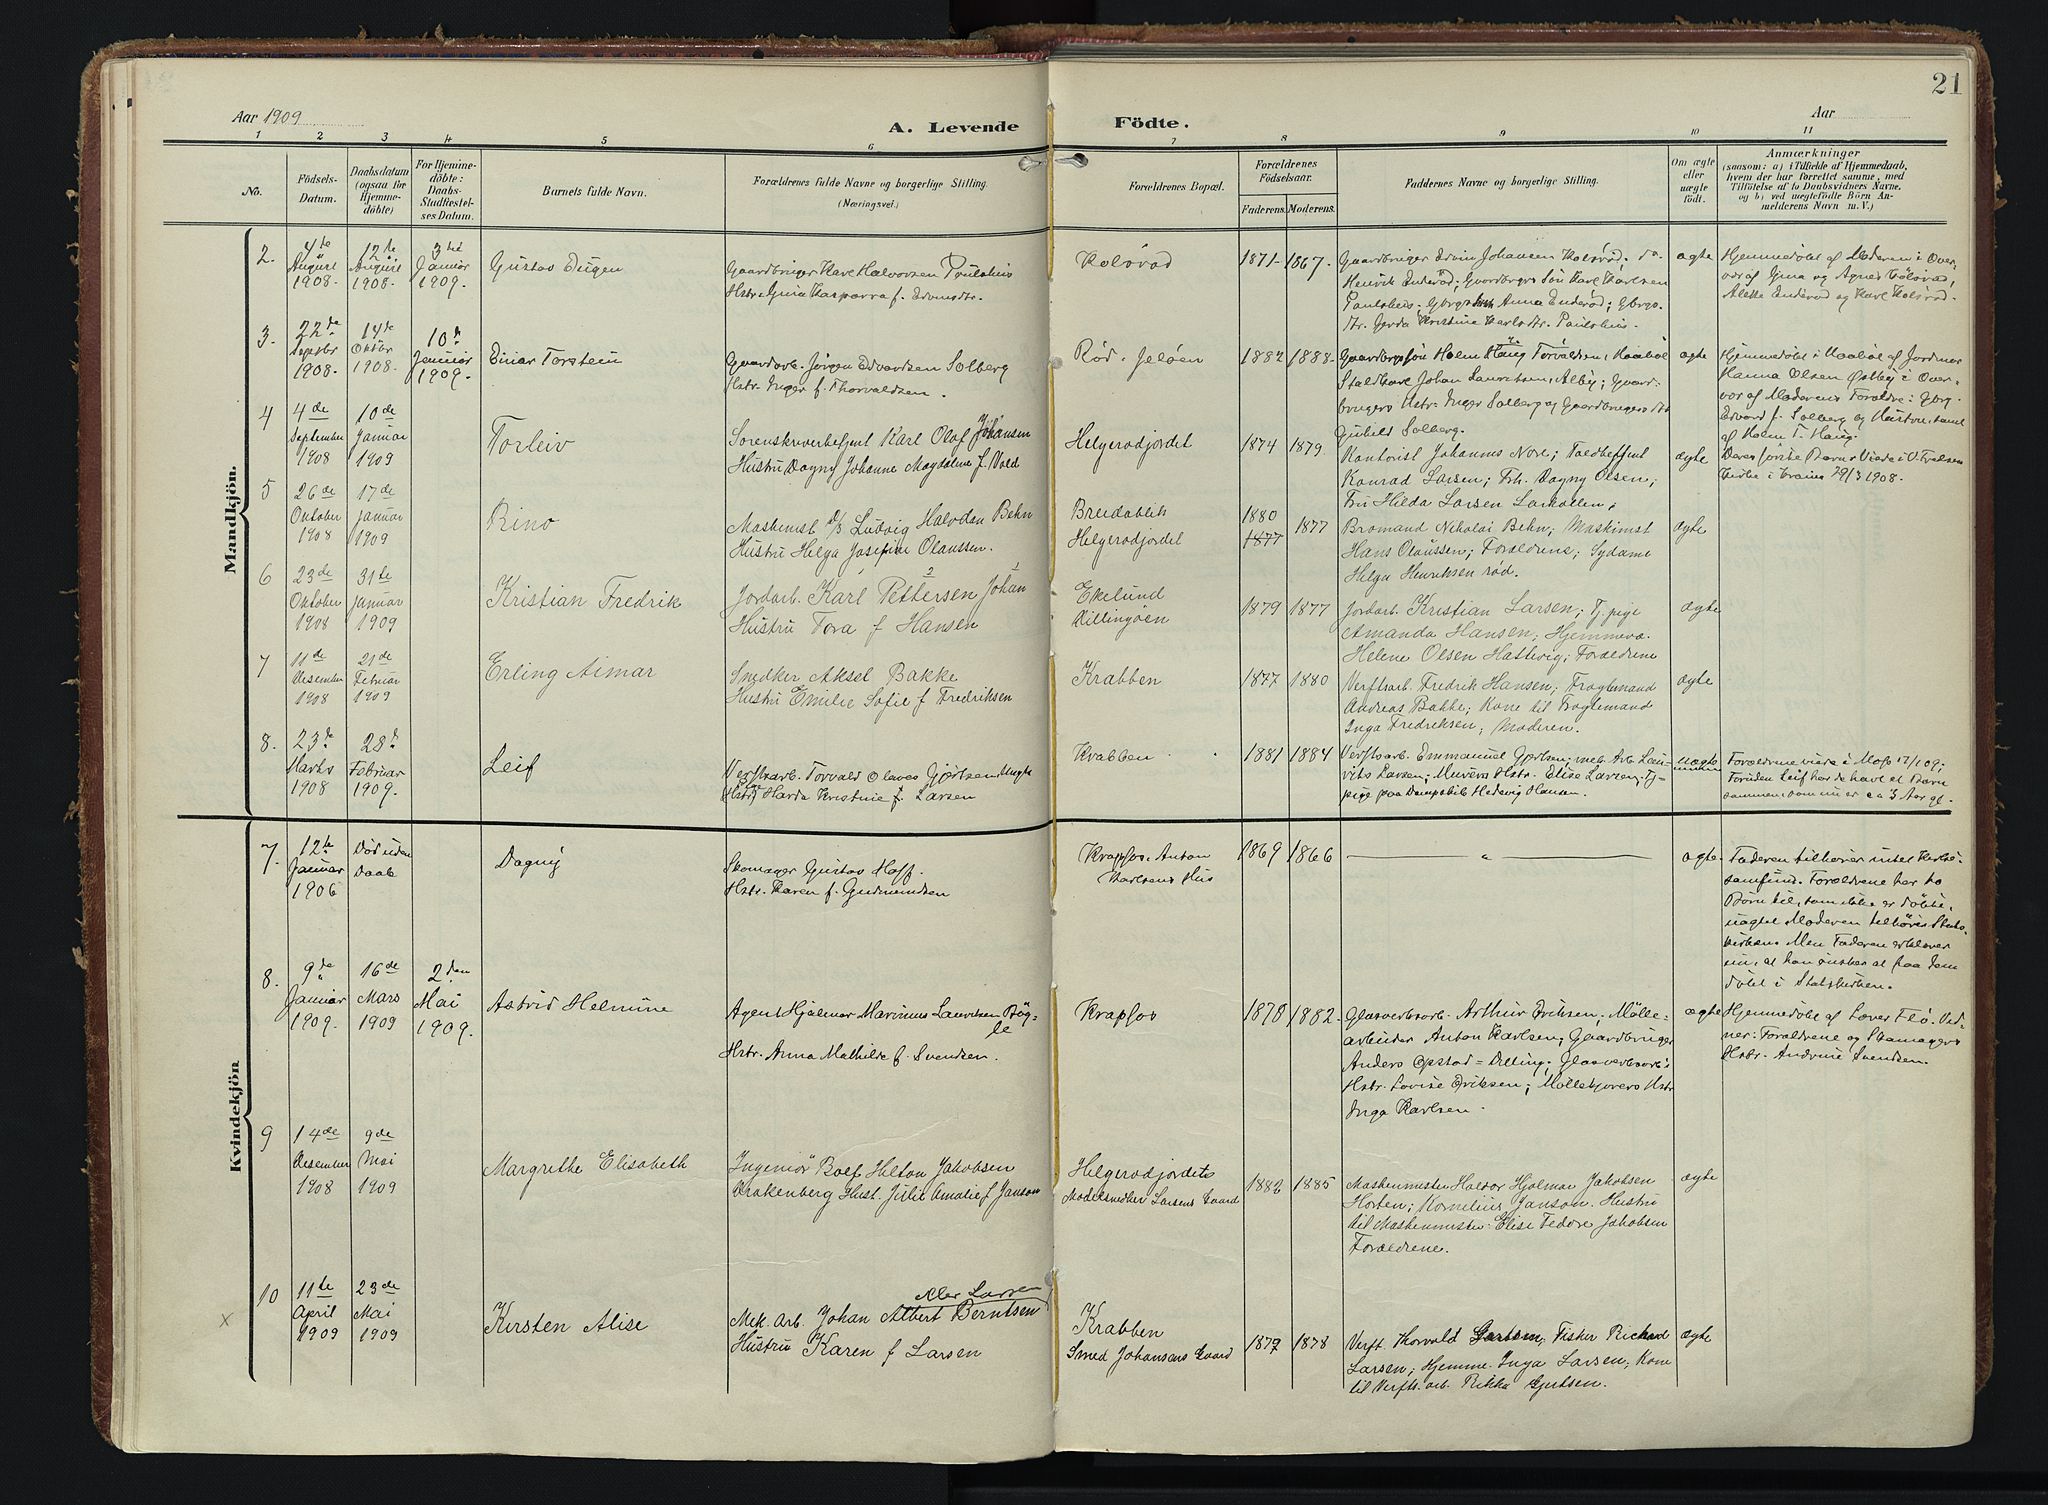 21
Aar 1909
A. Levende Fødte.
Aar
1 2 3 4 5 6 7 8 9 10 11
No.
Födsels-Datum.
Daabsdatum (ogsaa for Hjemme-döbte)
For Hjemme-döbte: Daabs-Stadfestel-ses Datum.
Barnets fulde Navn.
Forældrenes fulde Navne og borgerlige Stilling.
(Næringsvei.)
Forældrenes Bopæl.
Forældrenes Födselsaar.
Faderens. Moderens.
Faddernes Navne og borgerlige Stilling.
Om ægte eller uægte födt.
Anmærkninger
(saasom: a) i Tilfælde af Hjemmedaab,
hvem der har forrettet samme, med
Tilföielse af to Daabsvidners Navne.
og b) ved uægtefödte Börn An-
melderens Navn m. V.)
Mandkjön.
2. 4de August 1908. 12te August 1908. 3die Januar 1909.
Gustav Eugen
Gaardbruger Karl Halvorsen Paulshus
Hstr. Gina Kasparra f. Edvardsdtr.
Kolsrød
1871 - 1867.
Gaardbruger Edvin Johansen Kolsrød; do.
Henrik Enderød; Gaardbrgrs Søn Karl Karlsen
Paulshus; Gbrgs Hstr Anna Enderød; Gbrgs.
dtr. Gerda Kristine Karlsdtr. Paulshus.
ægte
Hjemmedøbt af Moderen i Over-
vær af Gina og Agnes Kolsrød,
Alette Enderød og Karl Kolsrød.
3. 22de Septbr 1908. 14de Oktbr 1908. 10de Januar 1909.
Einar Torstein
Gaardarb. Jørgen Edvardsen Solberg
Hstr. Inger f. Thorvaldsen.
Rød. Jeløen
1882 1888.
Gaardbrgssøn Holm Haug Torvaldsen,
Staldkarl Johan Lauritsen, Alby; Gaard-
brugers Hstr. Inger Solberg og Gaardbrugers dtr
Gunhild Solberg.
ægte
Hjemmedøbt i af Jordmor
Hanna Olsen Østby i Over-
vær af Moderens Forældre: Gbrg.
Edvard f. Solberg og Hustru, samt
af Holm T. Haug.
4 4de September 1908 10de Januar 1909
Torleiv
Sorenskriverbetjent Karl Olaf Johansen
Hustru Dagny Johanne Magdalene f. Vold
Helgerødjordet
1874 1879
Kontorist Johannes Nore; Toldbetjent
Konrad Larsen; Frk. Dagny Olsen;
Fru Hilda Larsen Larkollen;
ægte
Deres første Barn. Viede i V. Fredriks
Kirke i 29/3 1908.
5 26de Oktober 1908 17de Januar 1909
Rino
Maskinist D/S Ludvig Halvdan Behn
Hustru Helga Josefine Olaussen.
Breidablik
Helgerødjordet
1880
1877
1877
Bromand Nikolai Behn; Maskinist
Hans Olaussen; Forældrene; Sydame
Helga Henriksen Rød.
ægte
6 23de Oktober 1908 31te Januar 1909
Kristian Fredrik
Jordarb. Karl Pettersen Johan
Hustru Tora f Hansen
Ekelund
Dillingøen
1879 1877
Jordarb. Kristian Larsen; Tj.pige
Amanda Hansen; Hjemmeva.
Helene Olsen Hattvig; Forældrene
ægte
7 11de Desember 1908 21de Februar 1909
Erling Aimar
Snedker Aksel Bakke
Hustru Emilie Sofie f Fredriksen
Krabben
1877 1880
Verftsarb. Fredrik Hansen; Fragtemand
Andreas Bakke; Kone til Fragtemand
Inga Fredriksen; Moderen.
ægte
8. 23de Marts 1908 28de Februar 1909.
Leif
Verftsarb. Torvald Olaves Gjørtsen
Hstr. Harda Kristine f. Larsen
Krabben
1881 1884
Verftsarb. Emmanuel Gjørtsen; mek. Arb. Lau-
rits Larsen; Murers Hstr. Elise Larsen; Tj-
pige paa Dampskib Hedevig Hansen.
uægte
Forældrene viede i Moss 17/1 09;
Foruden Leif har de havt et Barn
sammen, som nu er ca 3 Aar gl.
Kvindekjön
7. 12te Januar 1906 Død uden Daab
Dagny
Skomager Gustav Hoff.
Hstr. Karen f. Gudmundsen
Krapfos. Anton
Karlsens Hus
1869 1866
ægte.
Faderen tilhører intet Kirke-
samfund. Forældrene har to
Børn til, som ikke er døbte,
uagtet Moderen tilhører Stats-
kirken. Men Faderen erklærer
nu, at han ønsker at faa dem
døbt i Statskirken.
8. 9de Januar 1909. 16de Mars 1909 2den Mai 1909.
Astrid Helmine
Agent Hjalmar Marinius Lauritsen Bøg-
le
Hstr. Anna Mathilde f. Svendsen.
Krapfos
1878 1882.
Glasverksarb. Arthur Eriksen; Mølle-
arbeider Anton Karlsen; Gaardbruger
Anders Opstad - Dilling; Glasverksarb's
Hstr. Lovise Eriksen; Møllekjørers Hstr
Inga Karlsen.
ægte
Hjemmedøbt af Lærer Flø. Vid-
ner: Forældrene og Skomagers
Hstr. Andrine Svendsen.
9 14de Desember 1908 9de Mai 1909
Margrethe Elisabeth
Ingeniør Rolf Helton Jakobsen
Drakenberg Hust. Julie Amalie f Janson
Helgerødjordets
Modelsnedker Larsens Gaard
1882 1885
Maskinmester Haldor Hjalmar Jakobsen
Horten; Kornelius Janson. Hustru
til Maskinmester Elise Fedore Jakobsen
Forældrene.
ægte
x
10 11te April 1909 23de Mai 1909
Kirsten Alise
eller Larsen
Mek. Arb. Johan Albert Berntsen
Hustru Karen f Larsen
Krabben
Smed Johansens Gaard
1877 1878
Verft. Thorvald Gjertsen; Fisker Richard
Larsen; Hjemme. Inga Larsen; Kone
til Verfts. arb. Rikka Gjertsen.
ægte